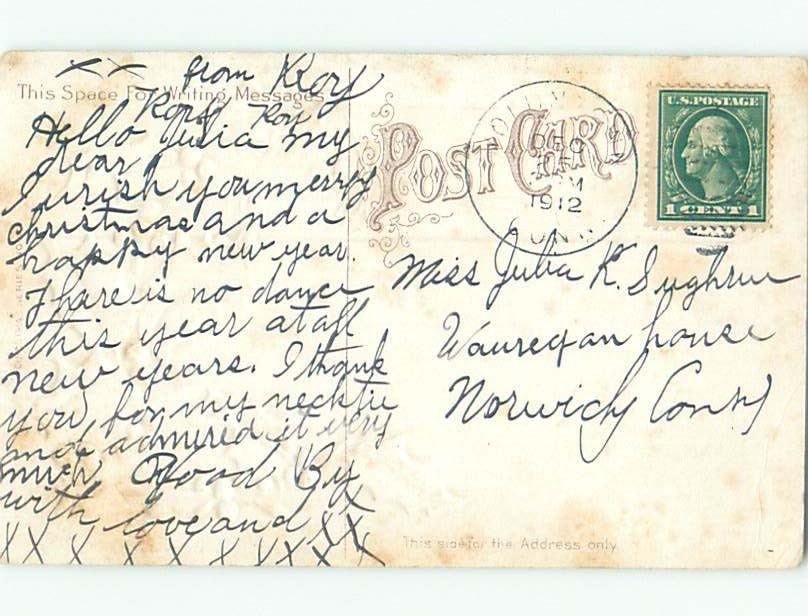 XX from Roy
This Space For Writing Messages
Roy
Hello Julia my
dear
I wish you merry
christmas and a
happy new year.
Thare is no dance
this year at all
new years. I thank
you for my necktie
and admired it very
much Good By
with love and XXX
XX X X X X XX X X
POST CARD
DEC
M
1912
CONN.
U.S. POSTAGE
1 CENT 1
Miss Julia K. Sughrue
Wauregan house
Norwich Conn
This side for the Address only